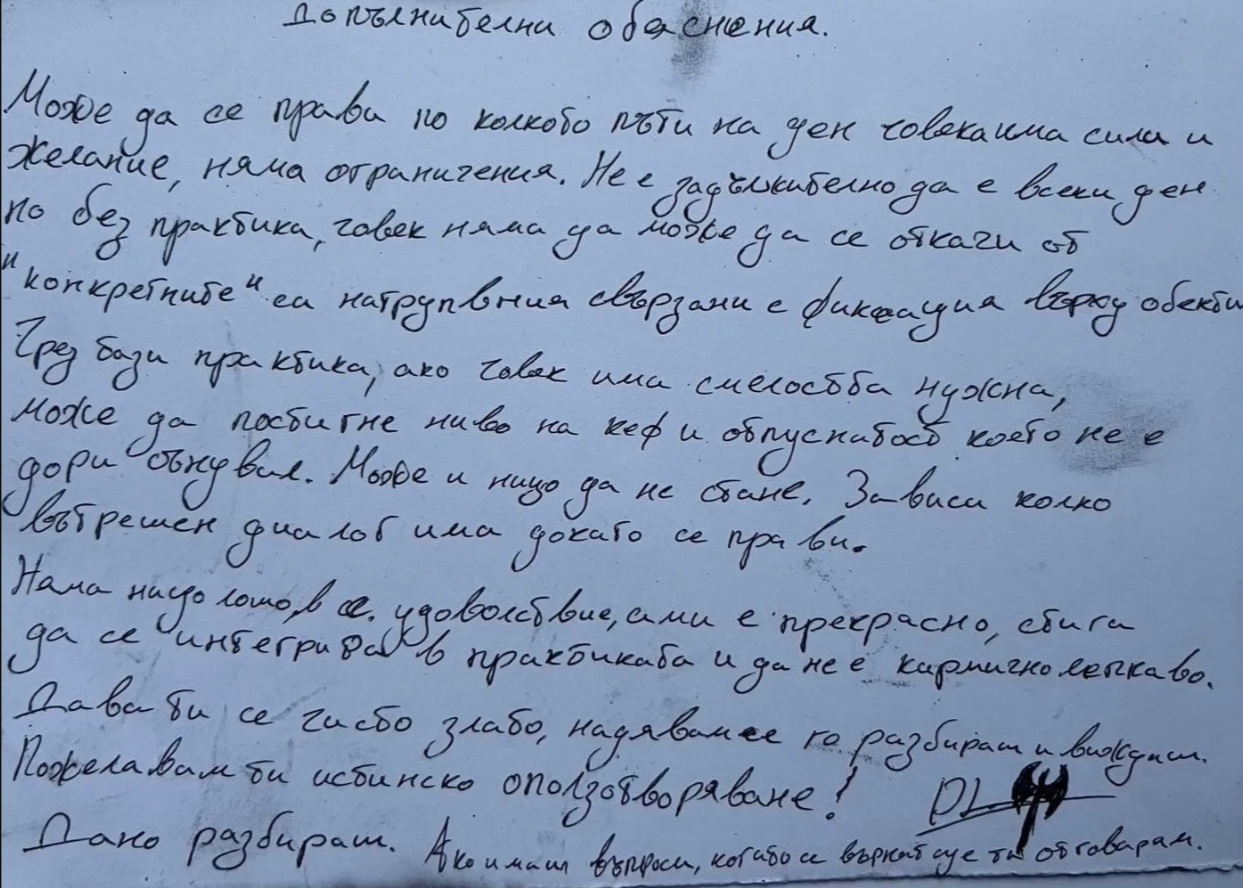 Допълнителни обяснения.
Може да се прави по колкото пъти на ден човека има сили и
желание, няма ограничения. Не е задължително да е всеки ден
но без практика, човек няма да може да се откачи от
"конкретните" си натрупвния свързани с фиксация върху обекти
Чрез тази практика, ако човек има смелостта нужна,
може да постигне ниво на кеф и отпуснатост което не е
дори сънувал. Може и нищо да не стане. Зависи колко
вътрешен диалог има докато се прави.
Няма нищо лошо, в удоволствие, ами е прекрасно, стига
да се интегрира в практиката и да не е кармично лепкаво.
Дава ти се чисто злато, надявам се го разбираш и виждаш.
Пожелавам ти истинско оползотворяване!
Дано разбираш. Ако имаш въпроси, когато се върна ще ти отговарям.